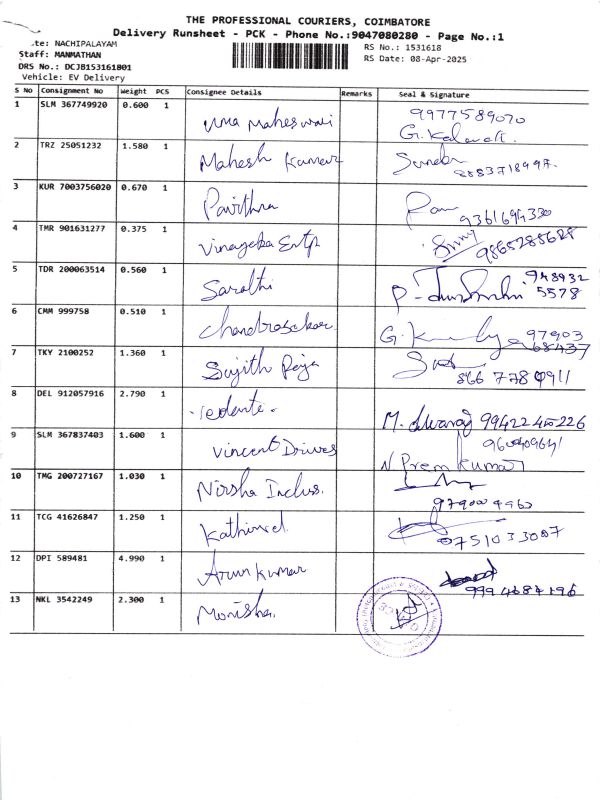 THE PROFESSIONAL COURIERS, COIMBATORE
Delivery Runsheet - PCK - Phone No.:9047080280 - Page No.:1
te: NACHIPALAYAM
RS No.: 1531618
Staff: MANMATHAN
RS Date: 08-Apr-2025
DRS No.: DCJB153161801
Vehicle: EV Delivery
S No Consignment No Weight PCS Consignee Details Remarks Seal & Signature
1 SLM 367749920 0.600 1 Uma Maheswari 9977589070
2 TRZ 25051232 1.580 1 Mahesh Kumar
3 KUR 7003756020 0.670 1 Pavithra 9361694330
4 TMR 901631277 0.375 1 Vinayaka Entp 9865285628
5 TDR 200063514 0.560 1 Sarathi 948932
5578
6 CMM 999758 0.510 1 Chandrasekar 97903
68437
7 TKY 2100252 1.360 1 Sujith Raja
8 DEL 912057916 2.790 1 M. 9942245226
9 SLM 367837403 1.600 1 Vincent Drives
N Prem Kumar
10 TMG 200727167 1.030 1
11 TCG 41626847 1.250 1 0751033087
12 DPI 589481 4.990 1 Arun Kumar 9994684196
13 NKL 3542249 2.300 1 Monisha.